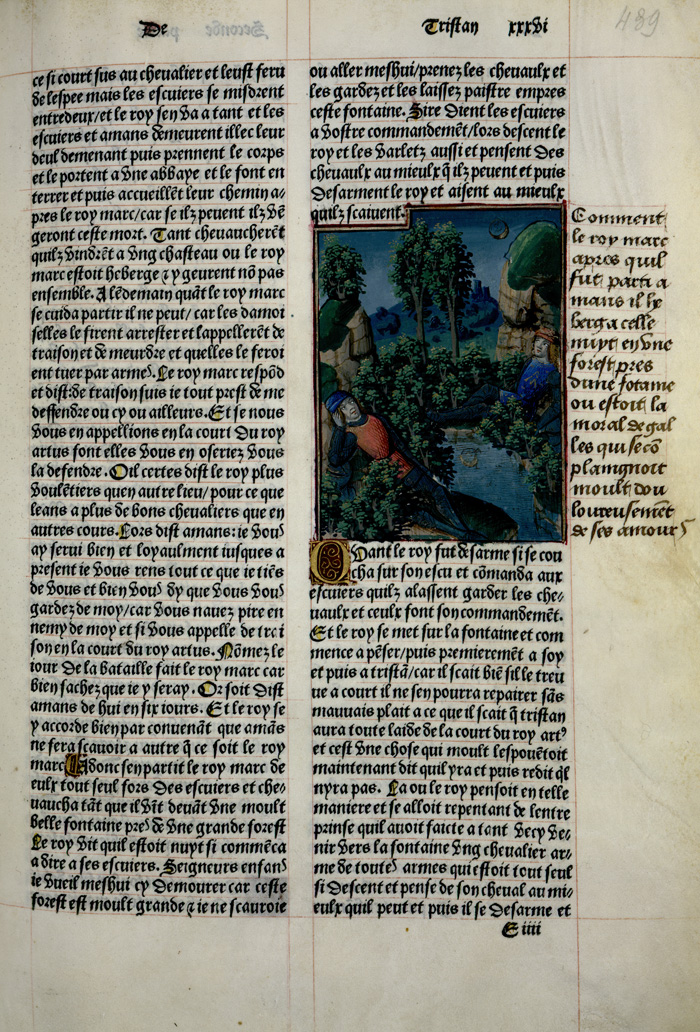 De
Tristan xxxvi
439
ce si court sus au cheualier et leust feru
de lespee mais les escuiers se misdrent
entredeux/et le roy sen va a tant et les
escuiers et amans demeurent illec leur
deul demenant puis prennent le corps
et le portent a vne abbaye et le font en
terrer et puis accueillẽt leur chemin a/
pres le roy marc/car se ilz peuent ilz vẽ
geront ceste mort. Tant cheuaucherẽt
quilz vindrẽt a vng chasteau ou le roy
marc estoit heberge ⁊ y geurent nõ pas
ensemble. A lẽdemain quãt le roy marc
se cuida partir il ne peut/ car les damoi
selles le firent arrester et lappellerẽt de
traison et de meurdre et quelles le feroi
ent tuer par armes. Le roy marc respõd
et dist: de traison suis ie tout prest de me
deffendre ou cy ou ailleurs. Et se nous
vous en appellions en la court du roy
artus font elles vous en oseriez vous
la defendre. Oil certes dist le roy plus
voulẽtiers quen autre lieu/ pour ce que
leans a plus de bons cheualiers que en
autres cours. Lors dist amans: ie vous
ay serui bien et loyaulment iusques a
present ie vous rens tout ce que ie tiẽs
de vous et bien vous dy que vous vous
gardez de moy/car vous nauez pire en
nemy de moy et si vous appelle de trai
son en la court du roy artus. Nõmez le
iour de la bataille fait le roy marc car
bien sachez que ie y seray. Or soit dist
amans de hui en six iours. Et le roy se
y accorde bien par conuenãt que amãs
ne fera scauoir a autre q̃ ce soit le roy
marc Adonc sen partit le roy marc de
eulx tout seul fors des escuiers et che/
uaucha tãt que il vĩt deuãt vne moult
belle fontaine pres de vne grande forest
Le roy vit quil estoit nuyt si commẽca
a dire a ses escuiers. Seigneurs enfans
ie vueil meshui cy demourer car ceste
forest est moult grande ⁊ ie ne scauroie
ou aller meshui/prenez les cheuaulx et
les gardez et les laissez paistre empres
ceste fontaine. Sire dient les escuiers
a vostre commandemẽt/lors descent le
roy et les varletz aussi et pensent des
cheuaulx au mieulx q̃ ilz peuent et puis
desarment le roy et aisent au mieulx
quilz scaiuent.
Comment
le roy marc
apres quil
fut parti a
mans il he
berga celle
nuyt en vne
forest pres
dune fõtaine
ou estoit la
moral de gal
les qui se cõ
plaingnoit
moult dou
loureusement
de ses amours
Quant le roy fut desarme si se cou
cha sur son escu et cõmanda aux
escuiers quilz alassent garder les che/
uaulx et ceulx font son commandemẽt.
Et le roy se met sur la fontaine et com
mence a pẽser/puis premieremẽt a soy
et puis a tristã/car il scait biẽ sil le treu
ue a court il ne sen pourra repairer sãs
mauuais plait a ce que il scait q̃ tristan
aura toute laide de la court du roy artꝰ
et cest vne chose qui moult lespouẽtoit
maintenant dit quil yra et puis redit ql̃
nyra pas. La ou le roy pensoit en telle
maniere et se alloit repentant de lentre
prinse quil auoit faicte a tant vecy ve/
nir vers la fontaine vng cheualier ar/
me de toutes armes qui estoit tout seul
si descent et pense de son cheual au mi/
eulx quil peut et puis il se desarme et
E iiii